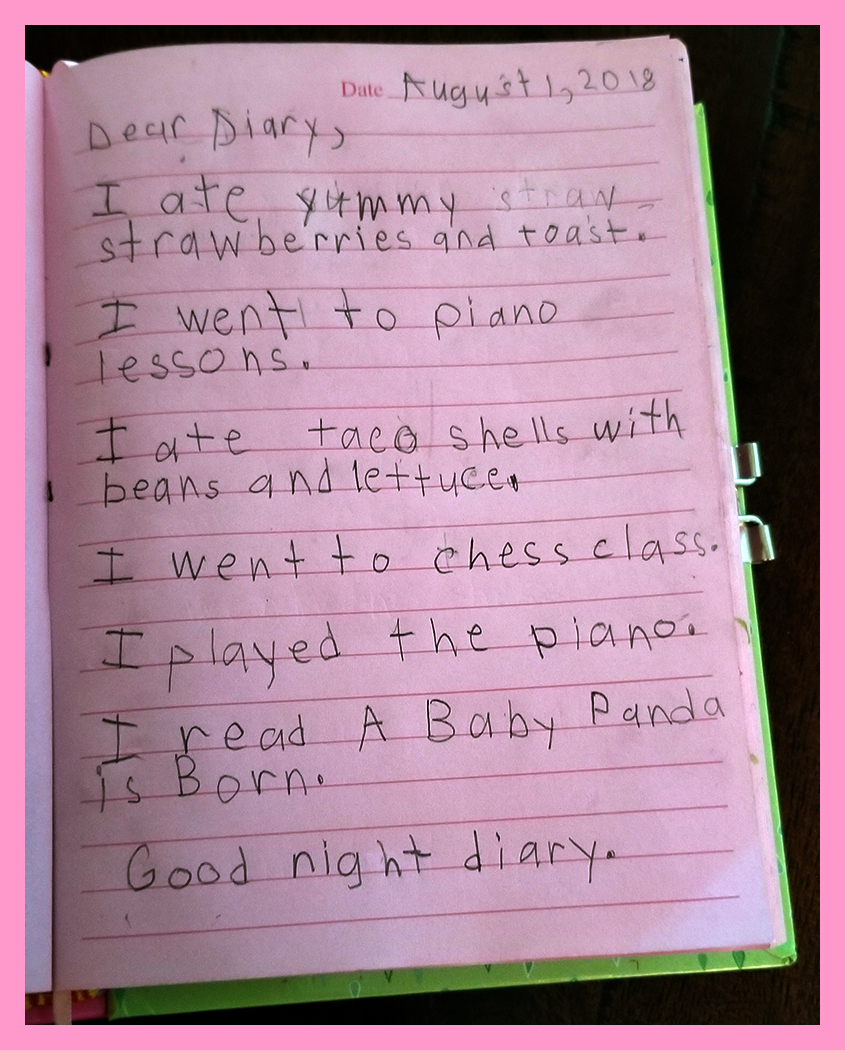 Date August 1, 2018
Dear Diary,
I ate yummy straw-
strawberries and toast.
I went to piano
lessons.
I ate taco shells with
beans and lettuce.
I went to chess class.
I played the piano.
I read A Baby Panda
is Born.
Good night diary.